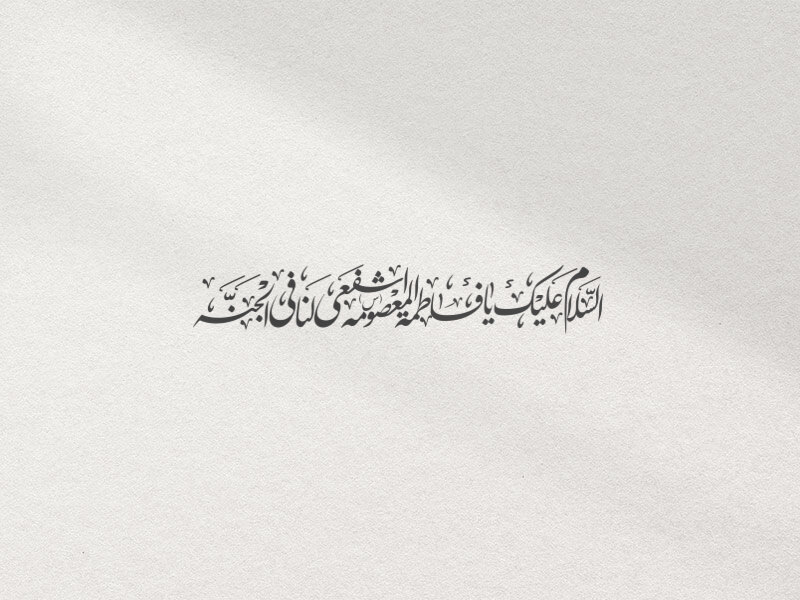 السلام علیک یا فاطمة المعصومه (س) اشفعی لنا فی الجنه